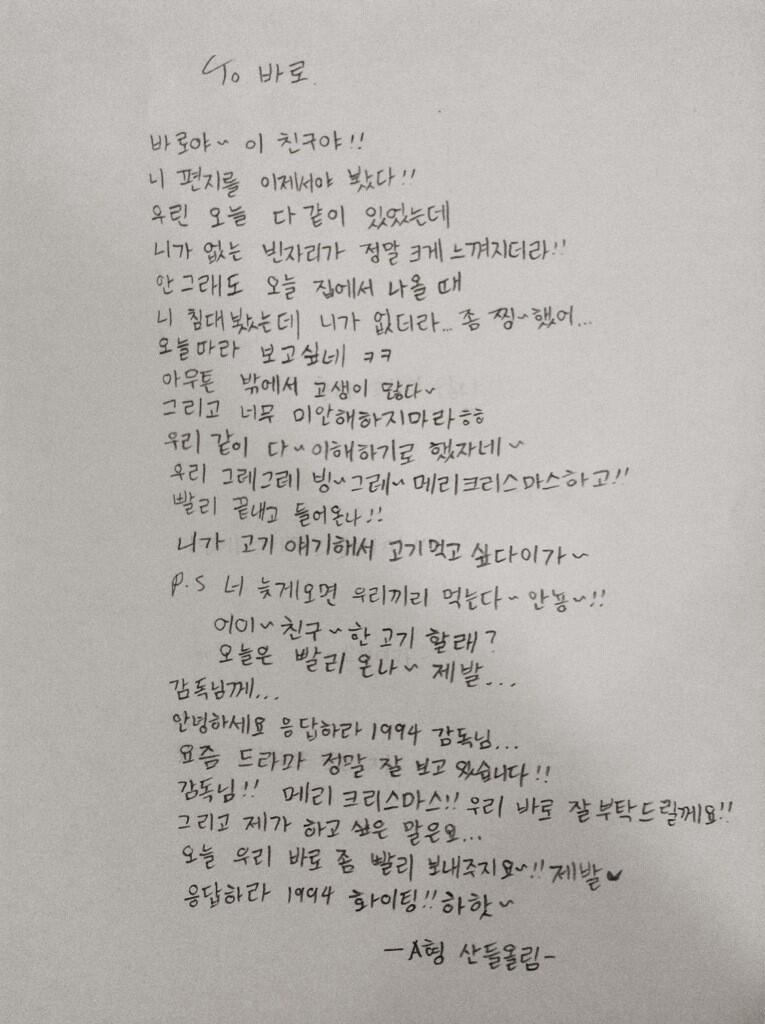 To 바로.
바로야~ 이 친구야!!
니 편지를 이제서야 봤다!!
우린 오늘 다 같이 있었는데
니가 없는 빈자리가 정말 크게 느껴지더라!!
안그래도 오늘 집에서 나올 때
니 침대봤는데 니가 없더라... 좀 찡~했어...
오늘따라 보고싶네 ㅋㅋ
아무튼 밖에서 고생이 많다~
그리고 너무 미안해하지마라ㅎㅎ
우리 같이 다~이해하기로 했자네~
우리 그레그레 빙~그레~ 메리크리스마스하고!!
빨리 끝내고 들어온나!!
니가 고기 얘기해서 고기먹고 싶다이가~
P.S 너 늦게오면 우리끼리 먹는다~안뇽~!!
어이~친구~한 고기 할래?
오늘은 빨리 온나~ 제발...
감독님께...
안녕하세요 응답하라 1994 감독님...
요즘 드라마 정말 잘 보고 있습니다!!
감독님!! 메리 크리스마스!! 우리 바로 잘부탁드릴께요!!
그리고 제가 하고 싶은 말은요...
오늘 우리 바로 좀 빨리 보내주지요~!! 제발♥
응답하라 1994 화이팅!! 하핫~
-A형 산들올림-